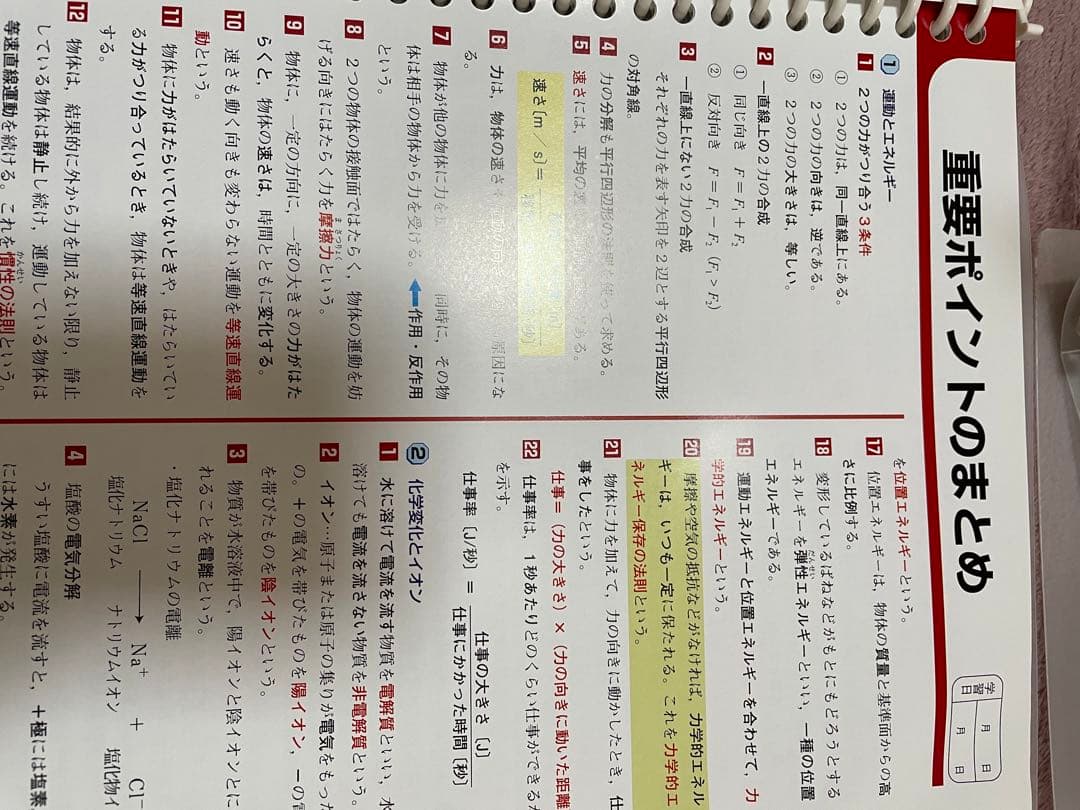 重要ポイントのまとめ
学習日
月 日
月 日
① 運動とエネルギー
1 2つの力がつり合う3条件
① 2つの力は、同一直線上にある。
② 2つの力の向きは、逆である。
③ 2つの力の大きさは、等しい。
2 一直線上の2力の合成
① 同じ向き F=F₁+F₂
② 反対向き F=F₁−F₂(F₁>F₂)
3 一直線上にない2力の合成
それぞれの力を表す矢印を2辺とする平行四辺形
の対角線。
4 力の分解も平行四辺形の法則を使って求める。
5 速さには、平均の速 ある。
速さ〔m/s〕=
6 力は、物体の速さ の向き 原因にな
る。
7 物体が他の物体に力を 同時に、その物
体は相手の物体から力を受ける。←作用・反作用
という。
8 2つの物体の接触面ではたらく、物体の運動を妨
げる向きにはたらく力を摩擦力という。
まさつりょく
9 物体に、一定の方向に、一定の大きさの力がはた
らくと、物体の速さは、時間とともに変化する。
10 速さも動く向きも変わらない運動を等速直線運
動という。
11 物体に力がはたらいていないときや、はたらいてい
る力がつり合っているとき、物体は等速直線運動を
する。
12 物体は、結果的に外から力を加えない限り、静止
している物体は静止し続け、運動している物体は
等速直線運動を続ける。これを慣性の法則という。
かんせい
を位置エネルギーという。
17 位置エネルギーは、物体の質量と基準面からの高
さに比例する。
18 変形しているばねなどがもとにもどろうとする
エネルギーを弾性エネルギーといい、一種の位置
だんせい
エネルギーである。
19 運動エネルギーと位置エネルギーを合わせて、力
学的エネルギーという。
20 摩擦や空気の抵抗などがなければ、力学的エネル
ギーは、いつも一定に保たれる。これを力学的エ
ネルギー保存の法則という。
21 物体に力を加えて、力の向きに動かしたとき、仕
事をしたという。
仕事=(力の大きさ)×(力の向きに動いた距離
22 仕事率は、1秒あたりどのくらい仕事ができるか
を示す。
仕事率〔J/秒〕= 仕事の大きさ〔J〕
仕事にかかった時間〔秒〕
② 化学変化とイオン
1 水に溶けて電流を流す物質を電解質といい、水
溶けても電流を流さない物質を非電解質という。
2 イオン…原子または原子の集りが電気をもった
の。+の電気を帯びたものを陽イオン、−の電
を帯びたものを陰イオンという。
3 物質が水溶液中で、陽イオンと陰イオンとに
れることを電離という。
・塩化ナトリウムの電離
NaCl → Na⁺ + Cl⁻
塩化ナトリウム ナトリウムイオン 塩化物イ
4 塩酸の電気分解
うすい塩酸に電流を流すと、+極には塩素
には水素が発生する。